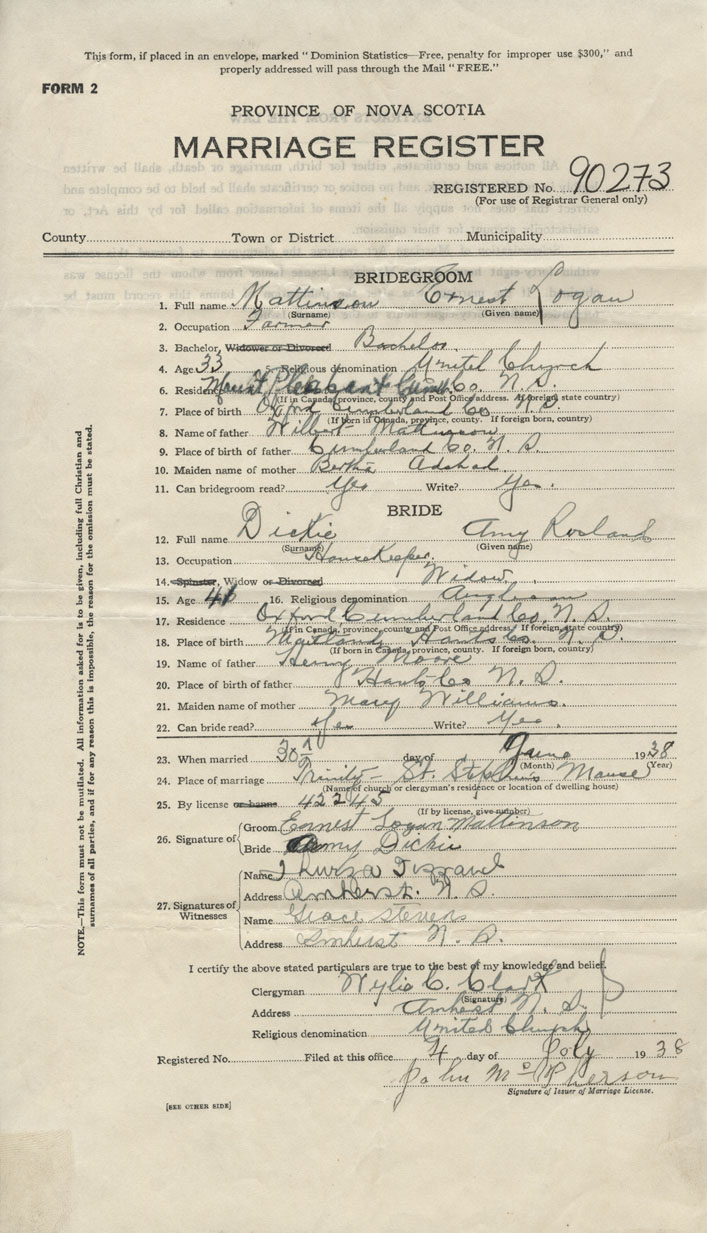 This form, if placed in an envelope, marked "Dominion Statistics—Free, penalty for improper use $300," and
properly addressed will pass through the Mail "FREE."
FORM 2
PROVINCE OF NOVA SCOTIA
MARRIAGE REGISTER
REGISTERED No. 90273
(For use of Registrar General only)
County Town or District Municipality
BRIDEGROOM
1. Full name Mattinson Ernest Logan
(Surname) (Given name)
2. Occupation Farmer
3. Bachelor, Widower or Divorced Bachelor
4. Age 33 5. Religious denomination United Church
6. Residence Mount Pleasant Cumb. Co. N. S.
(If in Canada, province, county and Post Office address. If foreign state county)
7. Place of birth Oxford Cumberland Co N.S.
(If born in Canada, province, county. If foreign born, country)
8. Name of father Wilbert Mattinson
9. Place of birth of father Cumberland Co. N. S.
10. Maiden name of mother Bertha
11. Can bridegroom read? Yes Write? Yes.
BRIDE
12. Full name Dickie Amy
(Surname) (Given name)
13. Occupation Housekeeper.
14. Spinster, Widow or Divorced Widow.
15. Age 41 16. Religious denomination Anglican
17. Residence Oxford, Cumberland Co. N. S.
(If in Canada, province, county and Post Office address. If foreign state county)
18. Place of birth Maitland Hants Co. N. S.
(If born in Canada, province, county. If foreign born, country)
19. Name of father Henry Moore
20. Place of birth of father Hants Co N. S.
21. Maiden name of mother Mary Williams.
22. Can bride read? Yes Write? Yes.
23. When married 30th day of June 1938
(Month) (Year)
24. Place of marriage Trinity - St. Stephens Manse
(Name of church or clergyman's residence or location of dwelling house)
25. By license or banns 42245
(If by license, give number)
26. Signature of Groom Ernest Logan Mattinson
Bride Amy Dickie
27. Signatures of Witnesses
Name
Address Amherst. N. S.
Name Grace Stevens
Address Amherst N. S.
I certify the above stated particulars are true to the best of my knowledge and belief.
Clergyman Wylie C. Clark
(Signature)
Address Amherst N. S.
Religious denomination United Church
Registered No. Filed at this office 4 day of July 1938
John McPherson
Signature of Issuer of Marriage License.
[SEE OTHER SIDE]
NOTE.—This form must not be mutilated. All information asked for is to be given, including full Christian and
surnames of all parties, and if for any reason this is impossible, the reason for the omission must be stated.